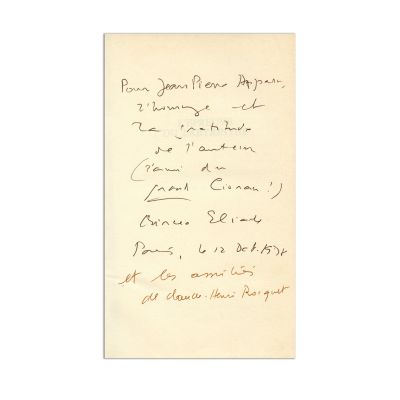 Pour Jean Pierre
l'homage et
la gratitude
de l'auteur
(l'ami du
grand Cioran!)
Mircea Eliade
Paris, le 12 Oct. 1978
et les amitiés
de Claude-Henri Rocquet